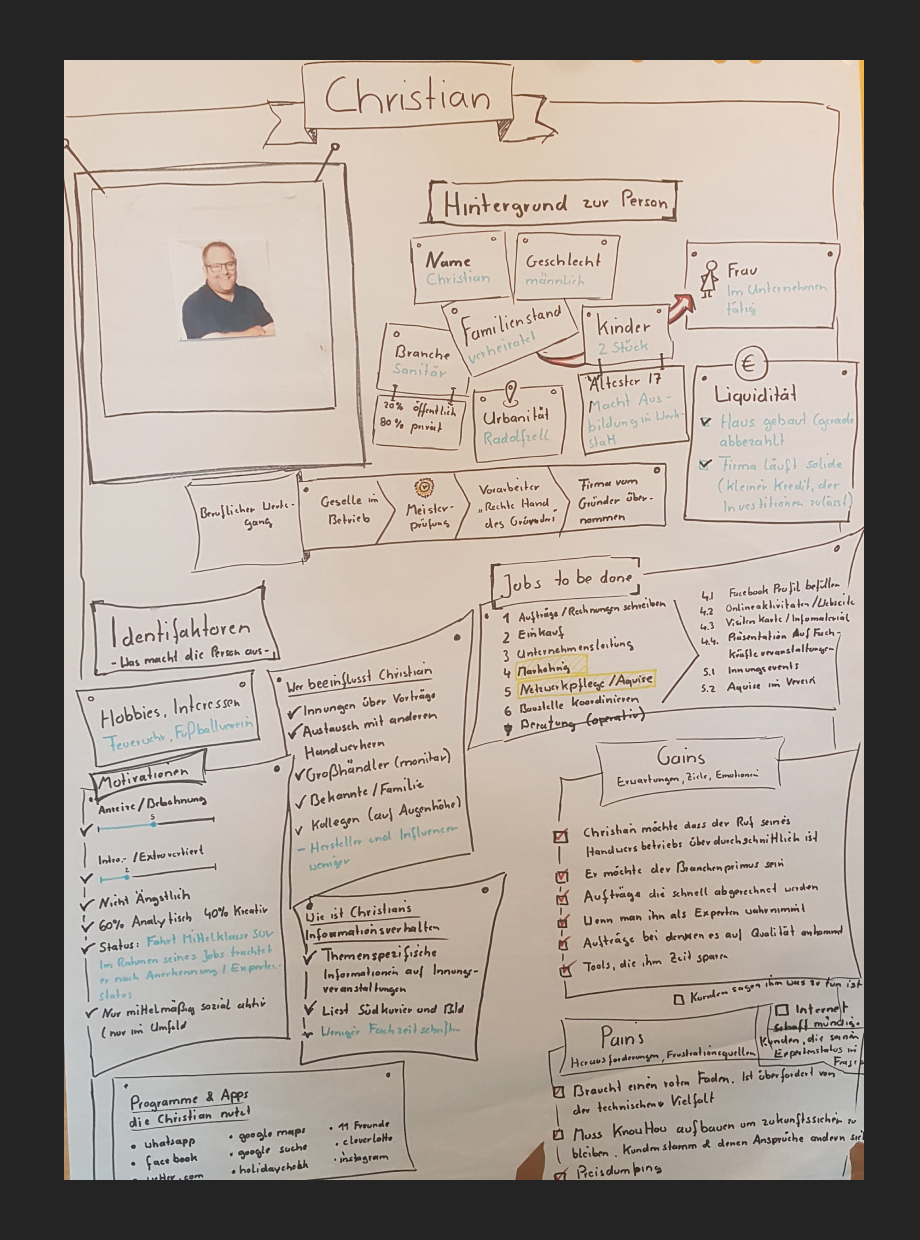 Christian
Hintergrund zur Person
Name
Christian
Geschlecht
männlich
Frau
Im Unternehmen
tätig
Familienstand
verheiratet
Kinder
2 Stück
Branche
Sanitär
20% öffentlich
80% privat
Urbanität
Radolfzell
Ältester 17
Macht Aus-
bildung in Werk-
statt
€
Liquidität
Haus gebaut (gerade
abbezahlt
Firma läuft solide
(kleiner Kredit, der
Investitionen zulässt)
Beruflicher Werde-
gang
Geselle im
Betrieb
Meister-
prüfung
Vorarbeiter
"Rechte Hand
des Gründers"
Firma vom
Gründer über-
nommen
Jobs to be done
1 Aufträge/Rechnungen schreiben
2 Einkauf
3 Unternehmensleitung
4 Marketing
5 Netzwerkpflege/Aquise
6 Baustelle koordinieren
Beratung (operativ)
4.1 Facebook Profil befüllen
4.2 Onlineaktivitäten/Webseite
4.3 Visitenkarte/Infomaterial
4.4. Präsentation Auf Fach-
kräfteveranstaltungen
5.1 Innungsevents
5.2 Aquise im Verein
Identifaktoren
- Was macht die Person aus -
Hobbies, Interessen
Feuerwehr, Fußballverein
Motivationen
Anreize/Belohnung
5
Intro-/Extrovertiert
2
Nicht Ängstlich
60% Analytisch 40% Kreativ
Status: Fährt Mittelklasse SUV
Im Rahmen seines Jobs trachtet
er nach Anerkennung / Experten-
status
Nur mittelmäßig sozial aktiv
(nur im Umfeld
Wer beeinflusst Christian
Innungen über Vorträge
Austausch mit anderen
Handwerkern
Großhändler (monitär)
Bekannte/Familie
Kollegen (auf Augenhöhe)
- Hersteller und Influencer
weniger
Wie ist Christians
Informationsverhalten
Themenspezifische
Informationen auf Innungs-
veranstaltungen
Liest Südkurier und Bild
Weniger Fachzeitschrift-
Gains
Erwartungen, Ziele, Emotionen
Christian möchte dass der Ruf seines
Handwerksbetriebs überdurchschnittlich ist
Er möchte der Branchenprimus sein
Aufträge die schnell abgerechnet werden
Wenn man ihn als Experten wahrnimmt
Aufträge bei denen es auf Qualität ankommt
Tools, die ihm Zeit sparen
Kunden sagen ihm was zu tun ist
Pains
Herausforderungen, Frustrationsquellen
Internet
schafft mündig.
Kunden, die seinen
Expertenstatus in
Frage
Braucht einen roten Faden. Ist überfordert von
der technischen Vielfalt
Muss KnowHow aufbauen um zukunftssicher zu
bleiben. Kundenstamm & denen Ansprüche ändern sich
Preisdumping
Programme & Apps
die Christian nutzt
• whatsapp
• facebook
• google maps
• google suche
• holidaycheck
• 11 Freunde
• cleverlotto
• instagram